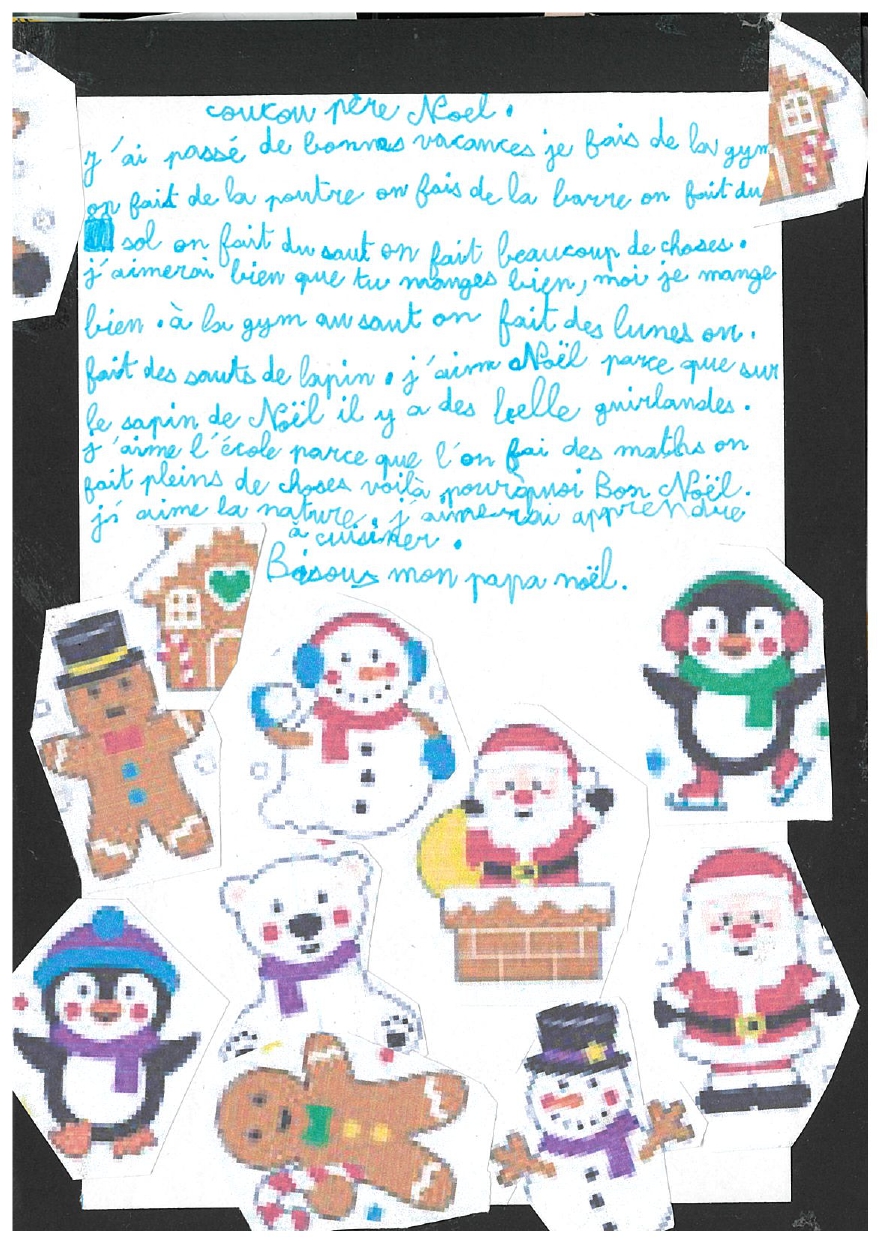 coucou père Noel.
j'ai passé de bonnes vacances je fais de la gym
on fait de la poutre on fais de la barre on fait du
sol on fait du saut on fait beaucoup de choses.
j'aimerai bien que tu manges bien, moi je mange
bien. à la gym au saut on fait des lunes on.
fait des sauts de lapin. j'aime Noël parce que sur
le sapin de Noël il y a des belle guirlandes.
j'aime l'école parce que l'on fai des maths on
fait pleins de choses voilà pourquoi Bon Noël.
j'aime la nature, j'aimerai apprendre
à cuisiner.
Bisous mon papa noël.